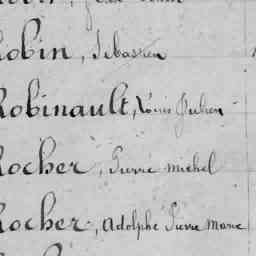 Robin, Sebastien
Robinault, Louis Julien
Rocher, Pierre Michel
Rocher, Adolphe Pierre Marie